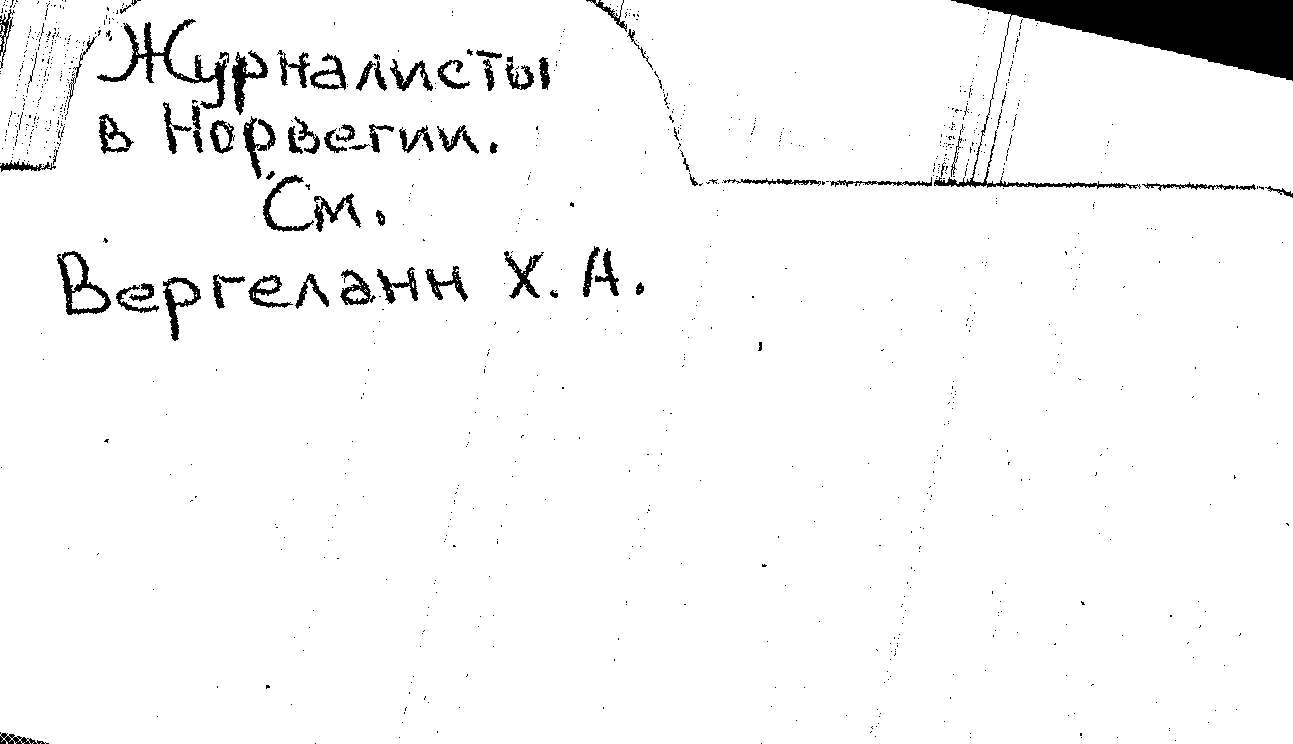 Журналисты
в Норвегии.
См.
Вергеланн Х. А.